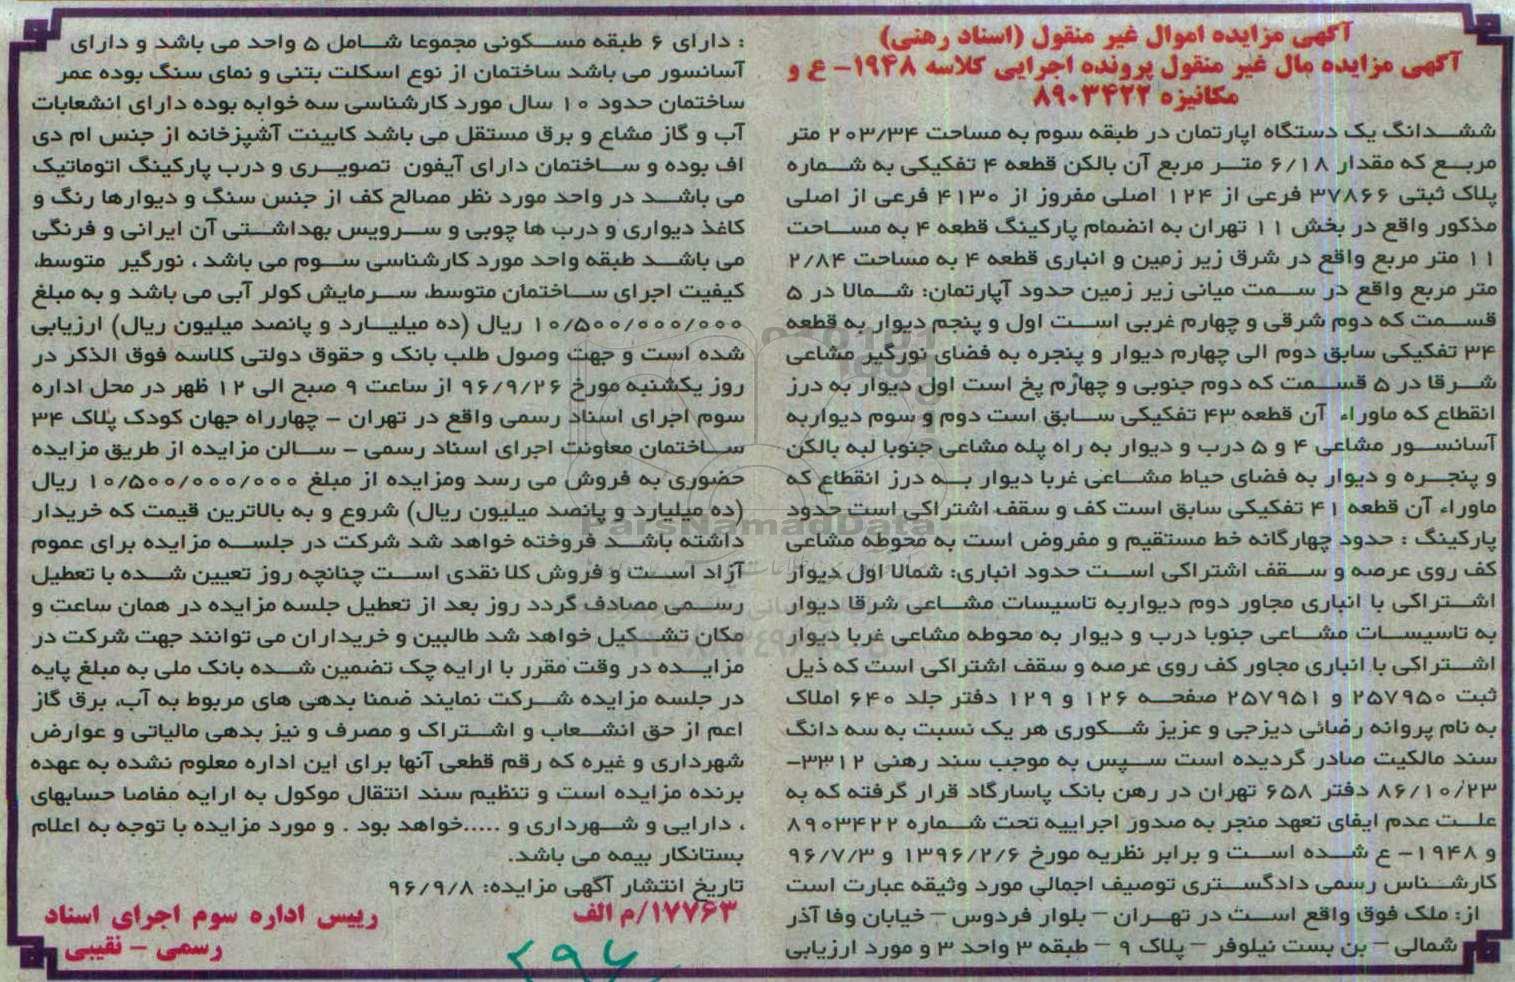 آگهی مزایده اموال غیر منقول (اسناد رهنی)
آگهی مزایده مال غیر منقول پرونده اجرایی کلاسه ۱۹۴۸- ع و
مکانیزه ۸۹۰۳۴۲۲
ششدانگ یک دستگاه اپارتمان در طبقه سوم به مساحت ۲۰۳/۳۴ متر
مربع که مقدار ۶/۱۸ متر مربع آن بالکن قطعه ۴ تفکیکی به شماره
پلاک ثبتی ۳۷۸۶۶ فرعی از ۱۲۴ اصلی مفروز از ۴۱۳۰ فرعی از اصلی
مذکور واقع در بخش ۱۱ تهران به انضمام پارکینگ قطعه ۴ به مساحت
۱۱ متر مربع واقع در شرق زیر زمین و انباری قطعه ۴ به مساحت ۲/۸۴
متر مربع واقع در سمت میانی زیر زمین حدود آپارتمان: شمالا در ۵
قسمت که دوم شرقی و چهارم غربی است اول و پنجم دیوار به قطعه
۳۴ تفکیکی سابق دوم الی چهارم دیوار و پنجره به فضای نورگیر مشاعی
شرقا در ۵ قسمت که دوم جنوبی و چهارم پخ است اول دیوار به درز
انقطاع که ماوراء آن قطعه ۴۳ تفکیکی سابق است دوم و سوم دیواربه
آسانسور مشاعی ۴ و ۵ درب و دیوار به راه پله مشاعی جنوبا لبه بالکن
و پنجره و دیوار به فضای حیاط مشاعی غربا دیوار به درز انقطاع که
ماوراء آن قطعه ۴۱ تفکیکی سابق است کف و سقف اشتراکی است حدود
پارکینگ : حدود چهارگانه خط مستقیم و مفروض است به محوطه مشاعی
کف روی عرصه و سقف اشتراکی است حدود انباری: شمالا اول دیوار
اشتراکی با انباری مجاور دوم دیواربه تاسیسات مشاعی شرقا دیوار
به تاسیسات مشاعی جنوبا درب و دیوار به محوطه مشاعی غربا دیوار
اشتراکی با انباری مجاور کف روی عرصه و سقف اشتراکی است که ذیل
ثبت ۲۵۷۹۵۰ و ۲۵۷۹۵۱ صفحه ۱۲۶ و ۱۲۹ دفتر جلد ۶۴۰ املاک
به نام پروانه رضائی دیزجی و عزیز شکوری هر یک نسبت به سه دانگ
سند مالکیت صادر گردیده است سپس به موجب سند رهنی ۳۳۱۲-
۸۶/۱۰/۲۳ دفتر ۶۵۸ تهران در رهن بانک پاسارگاد قرار گرفته که به
علت عدم ایفای تعهد منجر به صدور اجراییه تحت شماره ۸۹۰۳۴۲۲
و ۱۹۴۸- ع شده است و برابر نظریه مورخ ۱۳۹۶/۲/۶ و ۹۶/۷/۳
کارشناس رسمی دادگستری توصیف اجمالی مورد وثیقه عبارت است
از: ملک فوق واقع است در تهران – بلوار فردوس – خیابان وفا آذر
شمالی – بن بست نیلوفر – پلاک ۹ – طبقه ۳ واحد ۳ و مورد ارزیابی
: دارای ۶ طبقه مسکونی مجموعا شامل ۵ واحد می باشد و دارای
آسانسور می باشد ساختمان از نوع اسکلت بتنی و نمای سنگ بوده عمر
ساختمان حدود ۱۰ سال مورد کارشناسی سه خوابه بوده دارای انشعابات
آب و گاز مشاع و برق مستقل می باشد کابینت آشپزخانه از جنس ام دی
اف بوده و ساختمان دارای آیفون تصویری و درب پارکینگ اتوماتیک
می باشد در واحد مورد نظر مصالح کف از جنس سنگ و دیوارها رنگ و
کاغذ دیواری و درب ها چوبی و سرویس بهداشتی آن ایرانی و فرنگی
می باشد طبقه واحد مورد کارشناسی سوم می باشد ، نورگیر متوسط،
کیفیت اجرای ساختمان متوسط، سرمایش کولر آبی می باشد و به مبلغ
۱۰/۵۰۰/۰۰۰/۰۰۰ ریال (ده میلیارد و پانصد میلیون ریال) ارزیابی
شده است و جهت وصول طلب بانک و حقوق دولتی کلاسه فوق الذکر در
روز یکشنبه مورخ ۹۶/۹/۲۶ از ساعت ۹ صبح الی ۱۲ ظهر در محل اداره
سوم اجرای اسناد رسمی واقع در تهران – چهارراه جهان کودک پلاک ۳۴
ساختمان معاونت اجرای اسناد رسمی – سالن مزایده از طریق مزایده
حضوری به فروش می رسد ومزایده از مبلغ ۱۰/۵۰۰/۰۰۰/۰۰۰ ریال
(ده میلیارد و پانصد میلیون ریال) شروع و به بالاترین قیمت که خریدار
داشته باشد فروخته خواهد شد شرکت در جلسه مزایده برای عموم
آزاد است و فروش کلا نقدی است چنانچه روز تعیین شده با تعطیل
رسمی مصادف گردد روز بعد از تعطیل جلسه مزایده در همان ساعت و
مکان تشکیل خواهد شد طالبین و خریداران می توانند جهت شرکت در
مزایده در وقت مقرر با ارایه چک تضمین شده بانک ملی به مبلغ پایه
در جلسه مزایده شرکت نمایند ضمنا بدهی های مربوط به آب، برق گاز
اعم از حق انشعاب و اشتراک و مصرف و نیز بدهی مالیاتی و عوارض
شهرداری و غیره که رقم قطعی آنها برای این اداره معلوم نشده به عهده
برنده مزایده است و تنظیم سند انتقال موکول به ارایه مفاصا حسابهای
، دارایی و شهرداری و .....خواهد بود . و مورد مزایده با توجه به اعلام
بستانکار بیمه می باشد.
تاریخ انتشار آگهی مزایده: ۹۶/۹/۸
۱۷۷۶۳/م الف
رییس اداره سوم اجرای اسناد
رسمی – نقیبی
ParsNamadData